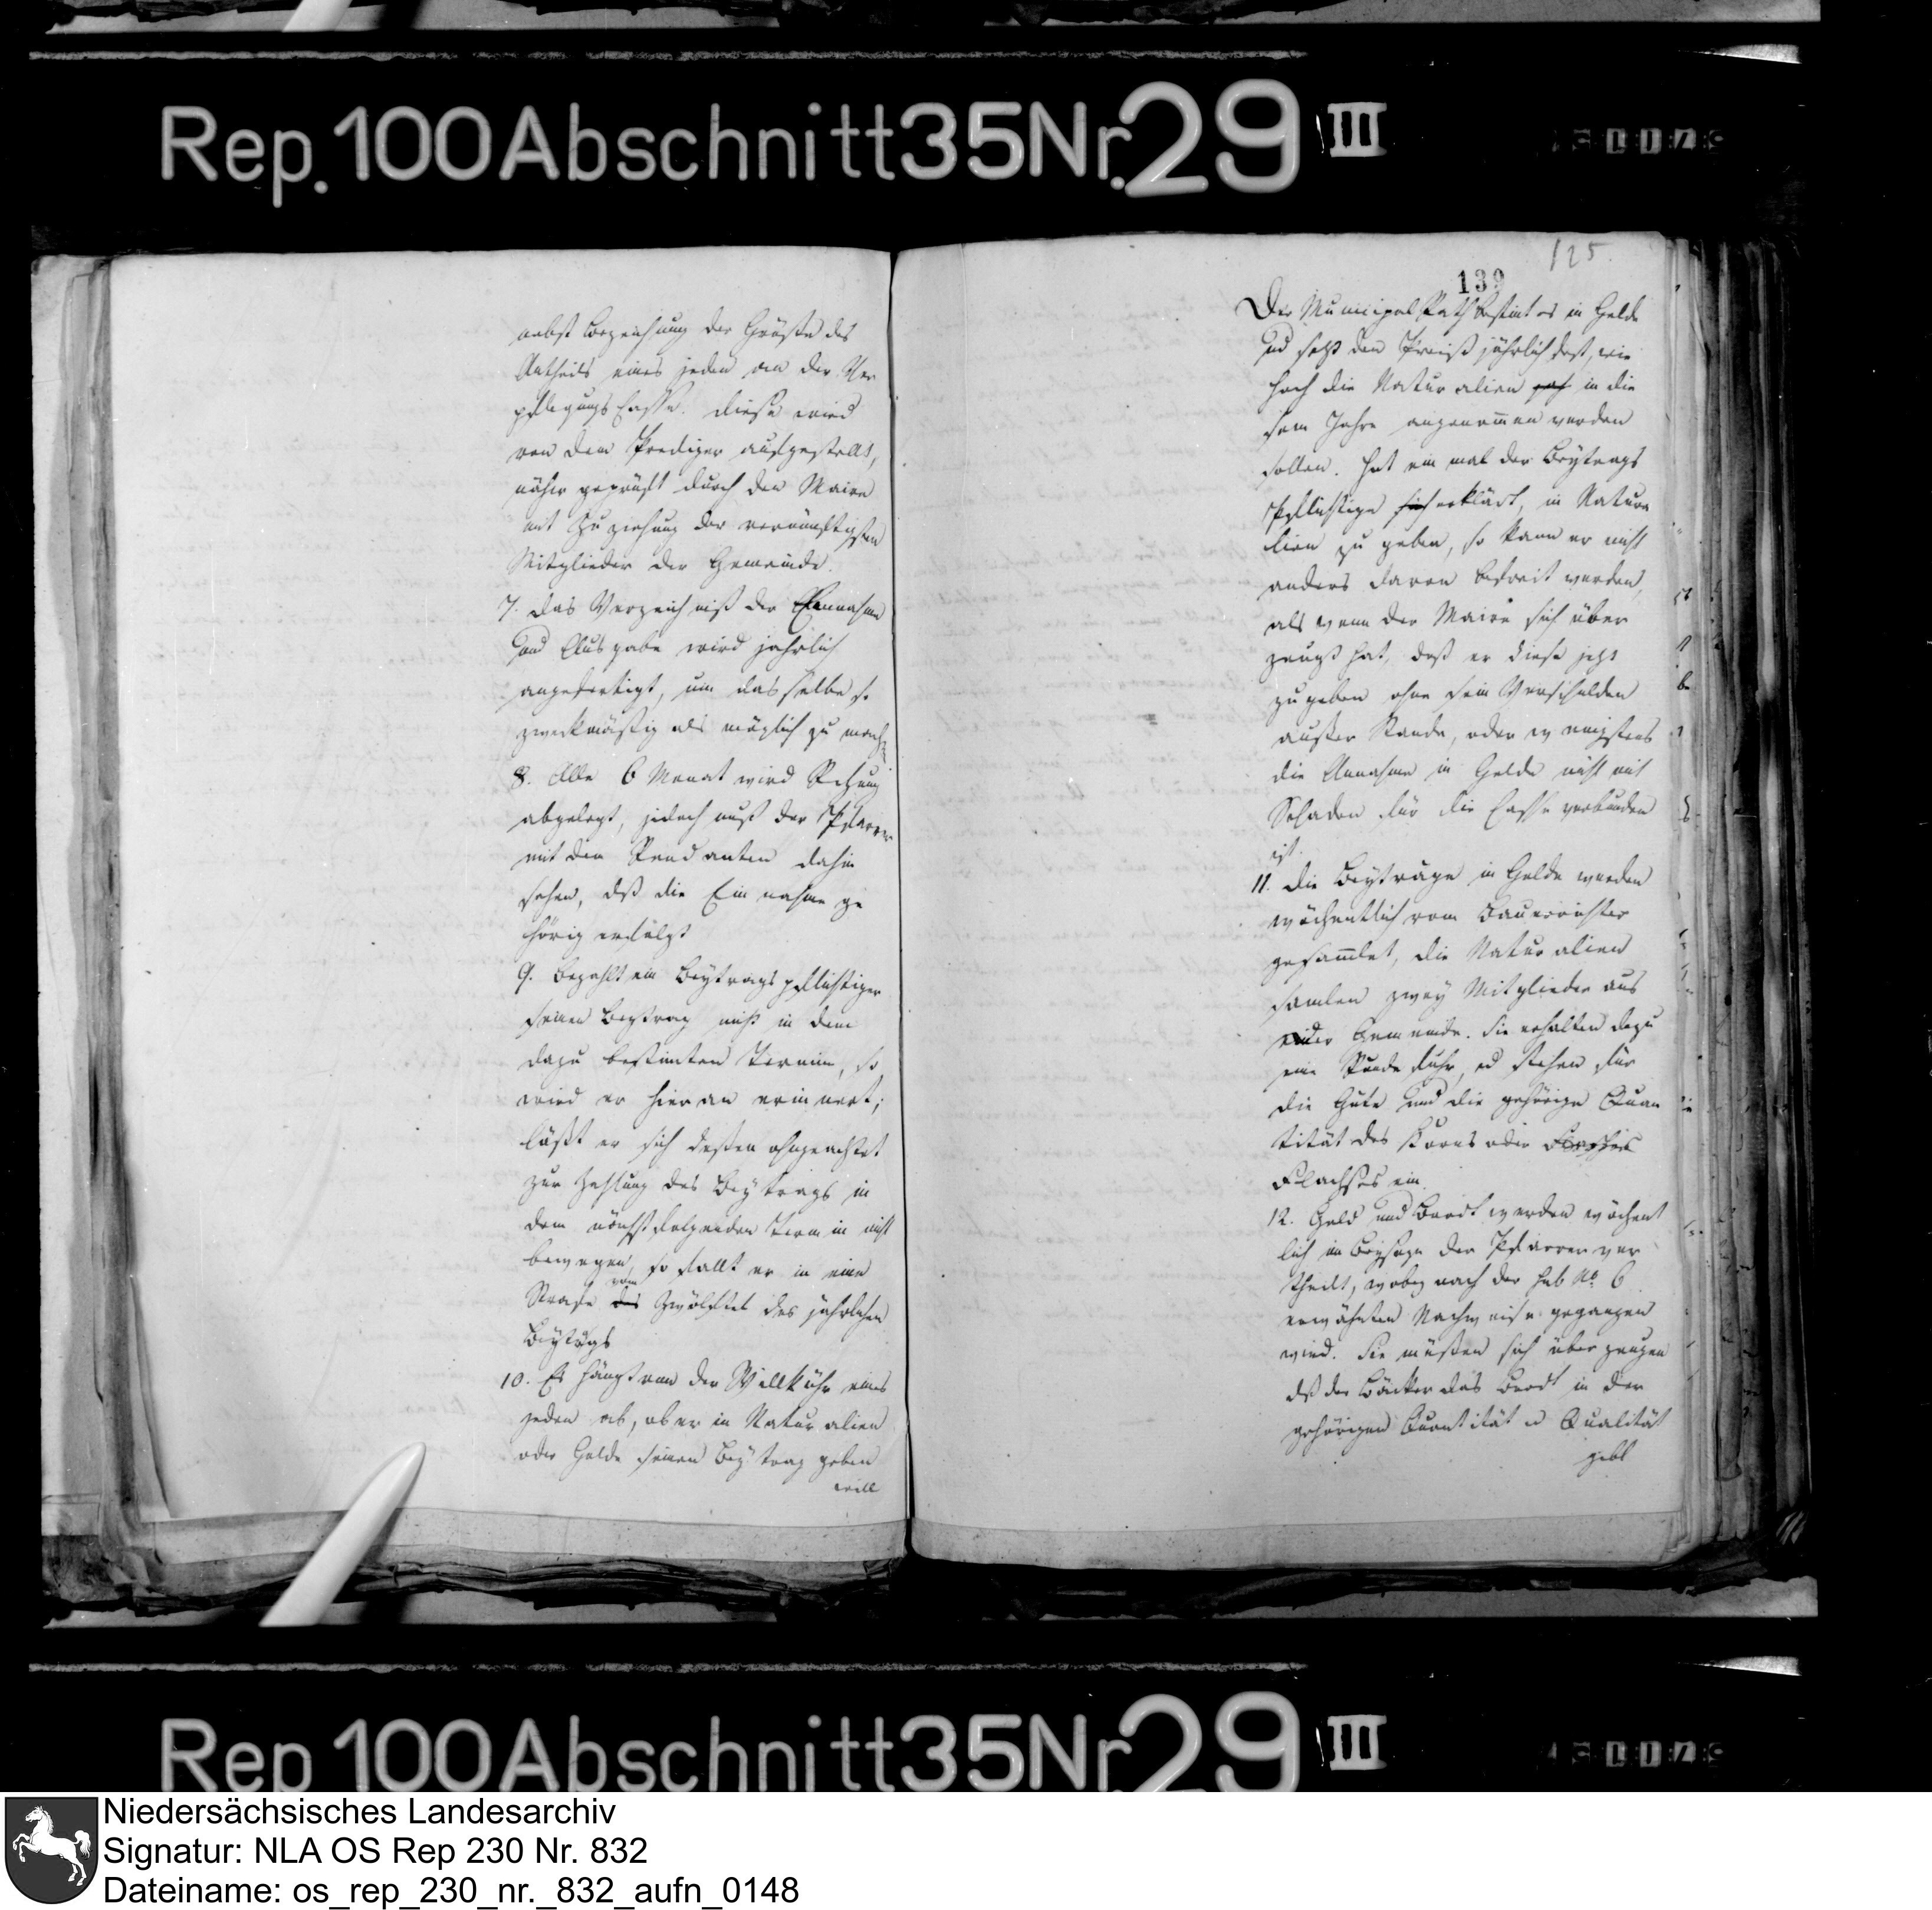 Rep. 100 Abschnitt 35 Nr. 29 III
nebst Bezeichnung der Größe des
Antheils eines jeden an der Ver
pflegungs Casse. diese wird
von dem Prediger aufgestellt,
näher geprüft durch den Maire
mit Zuziehung der vernünftigsten
Mitglieder der Gemeinde.
7. das Verzeichniß der Einnahme
und Ausgabe wird jährlich
angefertigt, um dasselbe so
zweckmäßig als möglich zu mach
8. Alle 6 Monat wird Rechnung
abgelegt, jedoch muß der Pfarrer
mit den Rendanten dahin
sehen, dß die Einnahme ge
hörig erfolgt
9. Bezahlt ein Beytragspflichtiger
seinen Beytrag nicht in dem
dazu bestimten Termin, so
wird er hieran erinnert;
läßt er sich deßen ohngeachtet
zur Zahlung des Beytrags in
dem nächstfolgenden Termin nicht
bewegen, so fällt er in eine
Strafe vom Zwölftel des jährlichen
Beytrags
10. Es hängt von der Willkühr eines
jeden ab, ob er in Naturalien
oder Gelde seinen Beytrag geben
will
125
139
Der Municipal Rath bestimt es in Gelde
und setzt den Preiß jährlich fest, wie
hoch die Naturalien in die
sem Jahre angenommen werden
sollen. Hat ein mal der Beytrags
Pflichtige sich erklärt, in Natura
lien zu geben, so kann er nicht
anders davon befreit werden,
als wenn der Maire sich über
zeugt hat, daß er diese jetzt
zu geben ohne sein Verschulden
außer Stande, oder wenigstens
die Annahme in Gelde nicht mit
Schaden für die Casse verbunden
ist.
11. die Beyträge in Gelde werden
wöchentlich vom Bauerrichter
gesammlet, die Naturalien
samlen zwey Mitglieder aus
der Gemeinde. Sie erhalten dazu
eine Runde fuhr, und stehen für
die Güte und die gehörige Quan
tität des Korns oder
Flachses ein.
12. Geld und Brodt werden wöchent
lich im Beyseyn der Pfarrer ver
theilt, wobey nach der sub No 6
erwähnten Nachweise gegangen
wird. Sie müßen sich überzeugen
dß der Bäcker das Brodt in der
gehörigen Quantität u Qualität
gebt
Rep 100 Abschnitt 35 Nr. 29 III
Niedersächsisches Landesarchiv
Signatur: NLA OS Rep 230 Nr. 832
Dateiname: os_rep_230_nr._832_aufn_0148